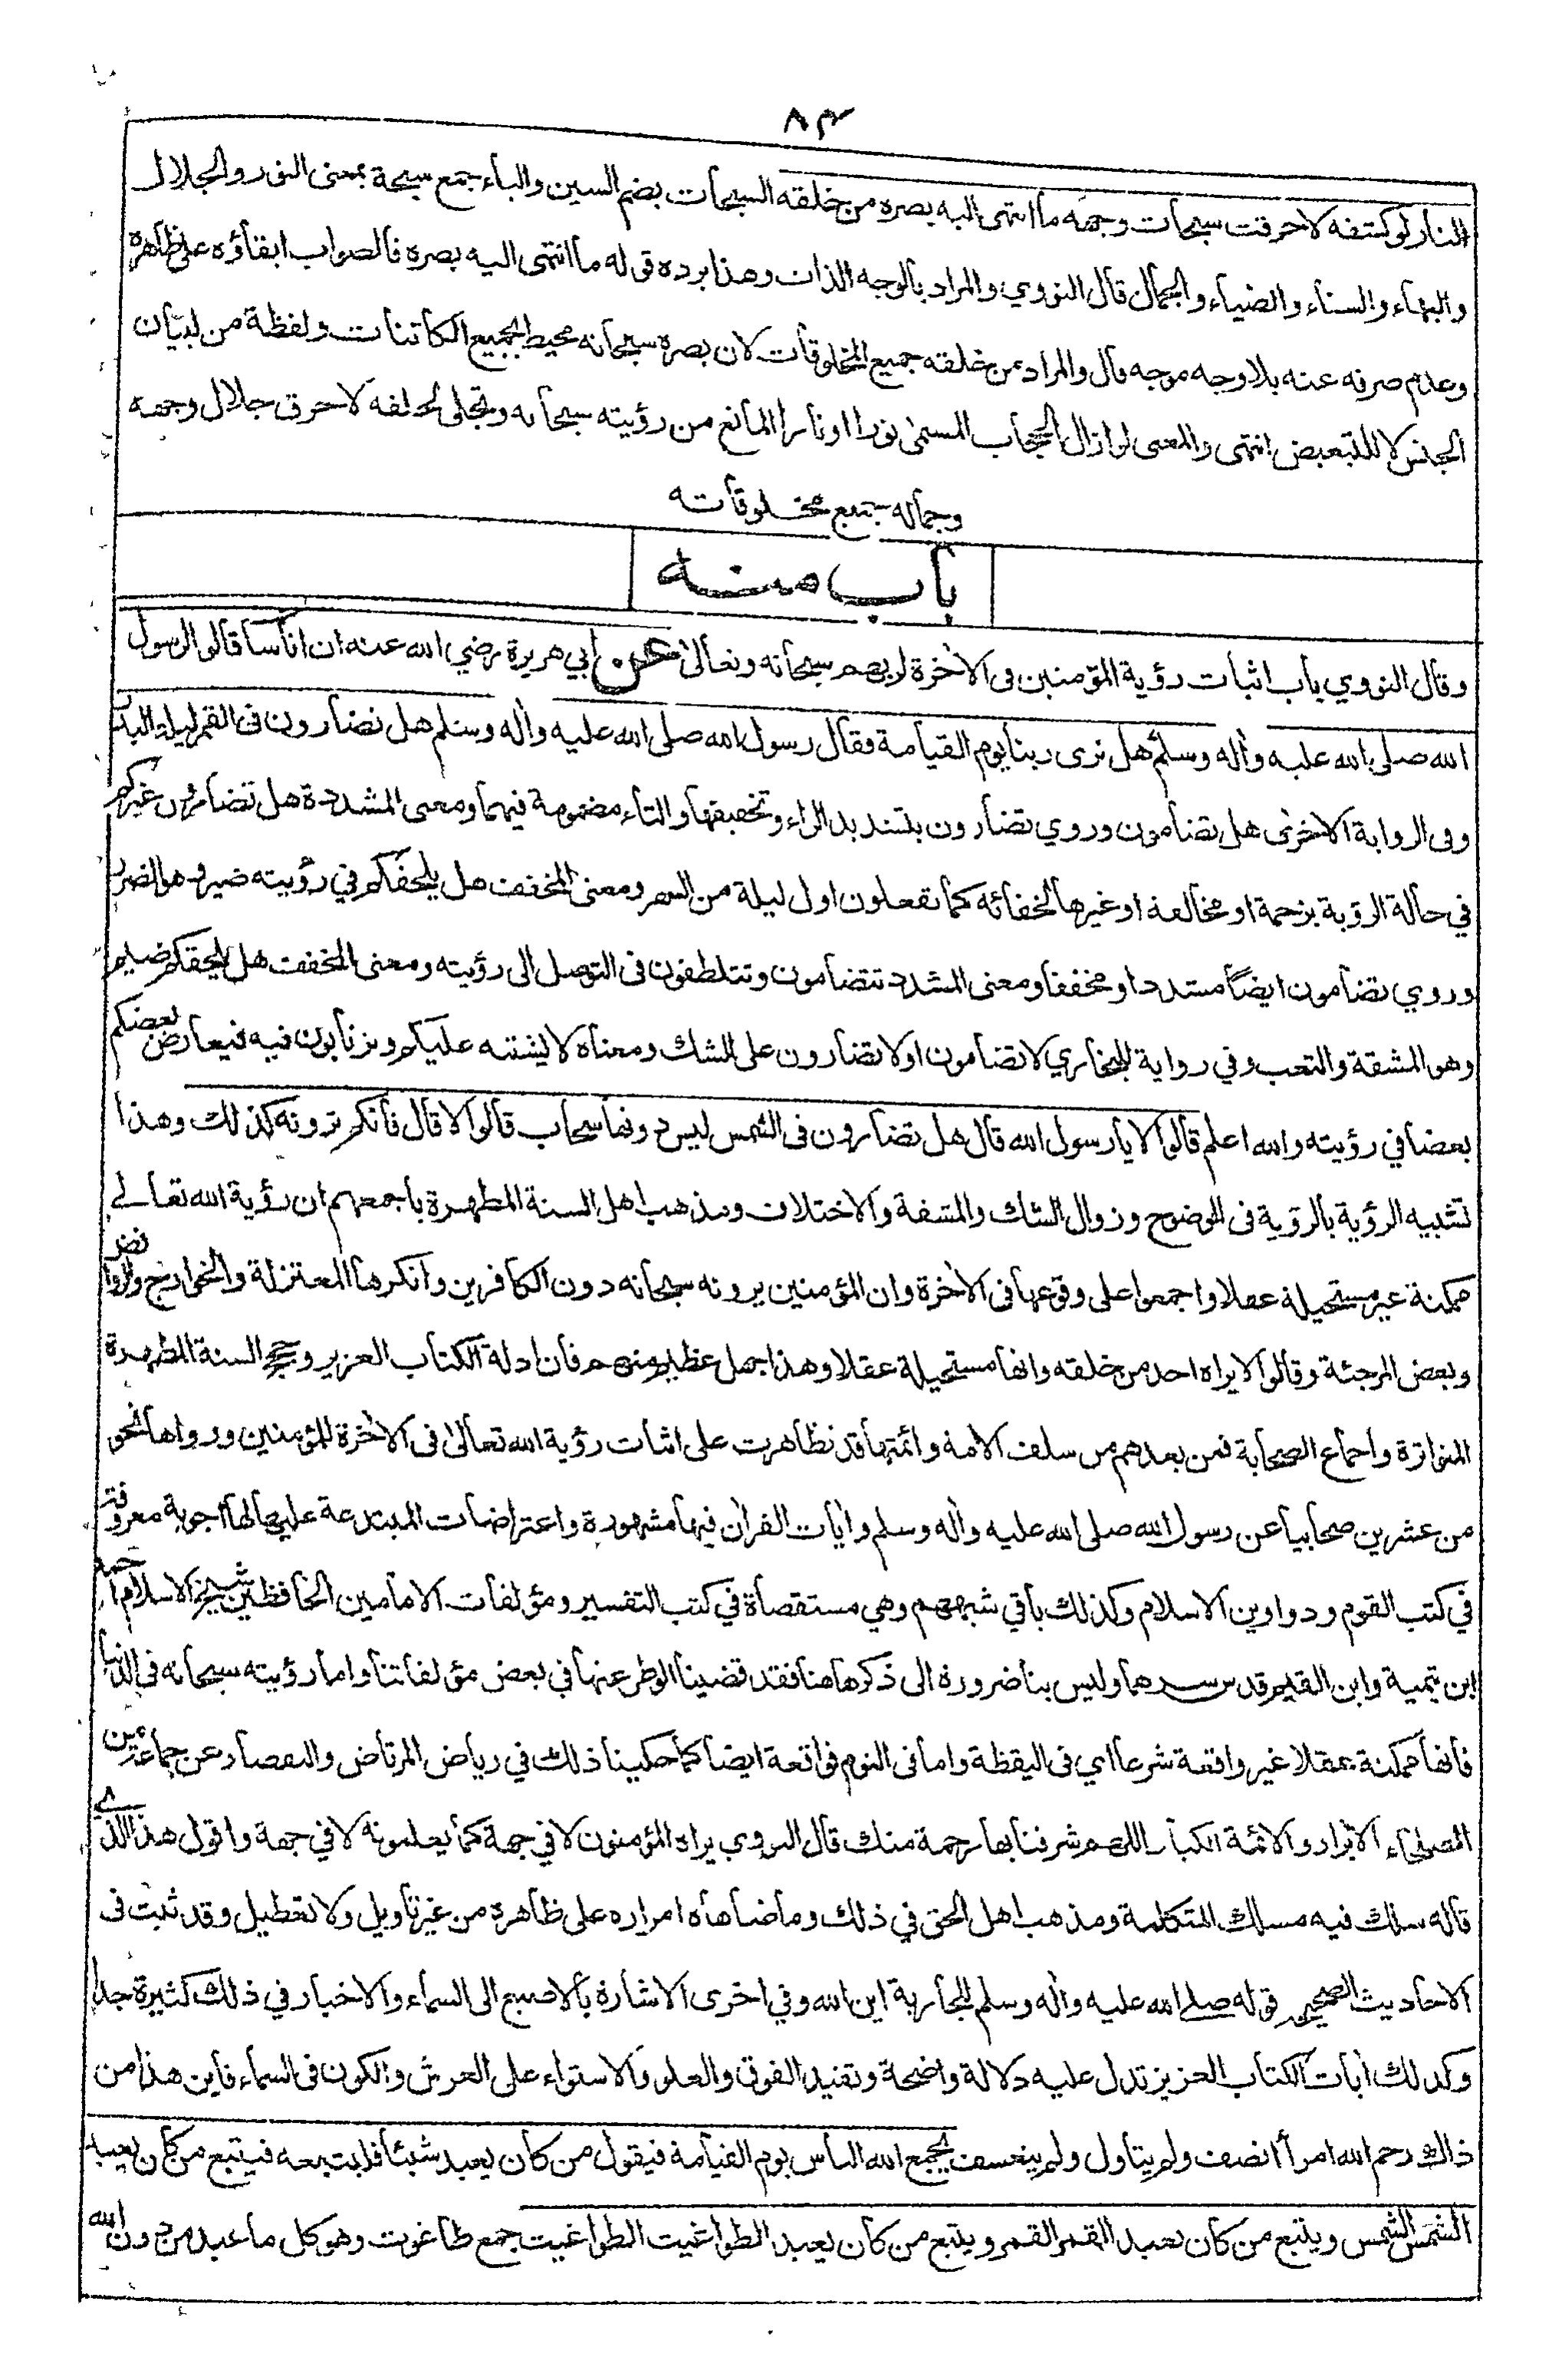 ٨٣
النار لو كشفه لاحرقت سبحات وجهه ما انتهى اليه بصره من خلقه السبحات بضم السين والباء جمع سبحة بمعنى النور والجلال
والبهاء والسناء والضياء والجمال قال النووي والمراد بالوجه الذات وهذا يرده قوله ما انتهى اليه بصره فالصواب ابقاؤه على ظاهره
وعدم صرفه عنه بلا وجه موجه قال والمراد بمن خلقته جميع المخلوقات لان بصره سبحانه محيط لجميع الكائنات ولفظة من لبيان
الجنس لا للتبعيض انتهى والمعنى لو ازال الحجاب المسمى نورا او نارا المانع من رؤيته سبحانه وتجلى لخلقه لاحرق جلال وجهه
وجماله جميع مخلوقاته
باب منه
وقال النووي باب اثبات رؤية المؤمنين فى الاخرة لربهم سبحانه وتعالى عن ابي هريرة رضي الله عنه ان اناسا قالوا لرسول
الله صلى الله عليه واله وسلم هل نرى ربنا يوم القيامة فقال رسول الله صلى الله عليه واله وسلم هل تضارون فى القمر ليلة البدر
وفى الرواية الاخرى هل تضامون وروي تضارون بتشديد الراء وتخفيفها والتاء مضمومة فيهما ومعنى المشددة هل تضارون غيركم
في حالة الرؤية بزحمة او مخالفة او غيرها لخفائه كما تفعلون اول ليلة من الشهر ومعنى المخفف هل يلحقكم في رؤيته ضير وهو الضرر
وروي تضامون ايضا مشددا ومخففا ومعنى المشدد تتضامون وتتلطفون فى التوصل الى رؤيته ومعنى المخفف هل يلحقكم ضيم
وهو المشقة والتعب وفي رواية للبخاري لا تضامون او لا تضارون على الشك ومعناه لا يشتبه عليكم وترتابون فيه فيعارض بعضكم
بعضا في رؤيته والله اعلم قالوا لا يا رسول الله قال هل تضارون فى الشمس ليس دونها سحاب قالوا لا قال فانكم ترونه كذلك وهذا
تشبيه الرؤية بالرؤية فى الوضوح وزوال الشك والمشقة والاختلاف ومذهب اهل السنة المطهرة باجمعهم ان رؤية الله تعالى
ممكنة غير مستحيلة عقلا واجمعوا على وقوعها فى الاخرة وان المؤمنين يرونه سبحانه دون الكافرين وانكرها المعتزلة والخوارج والروافض
وبعض المرجئة وقالوا لا يراه احد من خلقه وانها مستحيلة عقلا وهذا جهل عظيم منهم فان ادلة الكتاب العزيز وحجج السنة المطهرة
المتواترة واجماع الصحابة فمن بعدهم من سلف الامة وائمتها قد تظاهرت على اثبات رؤية الله تعالى فى الاخرة للمؤمنين ورواها نحو
من عشرين صحابيا عن رسول الله صلى الله عليه واله وسلم وايات القران فيها مشهورة واعتراضات المبتدعة عليها لها اجوبة معروفة
في كتب القوم ودواوين الاسلام وكذلك باقي شبههم وهي مستقصاة في كتب التفسير ومؤلفات الامامين الحافظين شيخ الاسلام احمد
ابن تيمية وابن القيم قدس سرهما وليس بنا ضرورة الى ذكرها هنا فقد قضينا الوطر عنها في بعض مؤلفاتنا واما رؤيته سبحانه فى الدنيا
فانها ممكنة بعقلا غير واقعة شرعا اي فى اليقظة واما فى النوم فواقعة ايضا كما حكينا ذلك في رياض المرتاض والتقصار عن جماعة من
الصلحاء الابرار والائمة الكبار اللهم شرفنا بها رحمة منك قال النووي يراه المؤمنون لا في جهة كما يعلمونه لا في جهة واقول هذا الذي
قاله سلك فيه مسلك المتكلمة ومذهب اهل الحق في ذلك وما ضاهاه امراره على ظاهره من غير تاويل ولا تعطيل وقد ثبت فى
الاحاديث الصحيحة قوله صلى الله عليه واله وسلم للجارية اين الله وفي اخرى الاشارة بالاصبع الى السماء والاخبار في ذلك كثيرة جدا
وكذلك ايات الكتاب العزيز تدل عليه دلالة واضحة وتفيد الفوق والعلو والاستواء على العرش والكون فى السماء فاين هذا من
ذاك رحم الله امرأ انصف ولم يتاول ولم يتعسف يجمع الله الناس يوم القيامة فيقول من كان يعبد شيئا فليتبعه فيتبع من كان يعبد
الشمس الشمس ويتبع من كان يعبد القمر القمر ويتبع من كان يعبد الطواغيت الطواغيت جمع طاغوت وهو كل ما عبد من دون الله